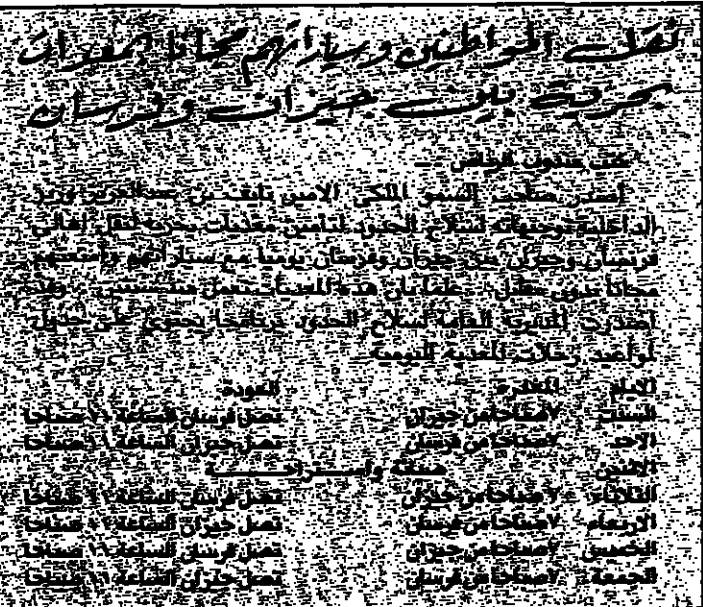 نقل المواطنين وسياراتهم مجانا بمعديات
بحرية بين جيزان وفرسان
كتب مندوب الرياض —
أصدر صاحب السمو الملكي الأمير نايف بن عبدالعزيز وزير
الداخلية توجيهاته لسلاح الحدود لتأمين معديات بحرية لنقل أهالي
فرسان وجيزان بين جيزان وفرسان يوميا مع سياراتهم وأمتعتهم
مجانا بدون مقابل علما بأن هذه المعديات تعمل .. وقد
أصدرت المديرية العامة لسلاح الحدود برنامجا يحتوي على جدول
لمواعيد رحلات المعدية اليومية
الأيام المغادرة العودة
السبت ٧ صباحا من جيزان تصل فرسان الساعة ١١ صباحا
الاحد ٧ صباحا من فرسان تصل جيزان الساعة ١١ صباحا
الاثنين صيانة واستراحة
الثلاثاء ٧ صباحا من جيزان تصل فرسان الساعة ١١ صباحا
الاربعاء ٧ صباحا من فرسان تصل جيزان الساعة ١١ صباحا
الخميس ٧ صباحا من جيزان تصل فرسان الساعة ١١ صباحا
الجمعة ٧ صباحا من فرسان تصل جيزان الساعة ١١ صباحا